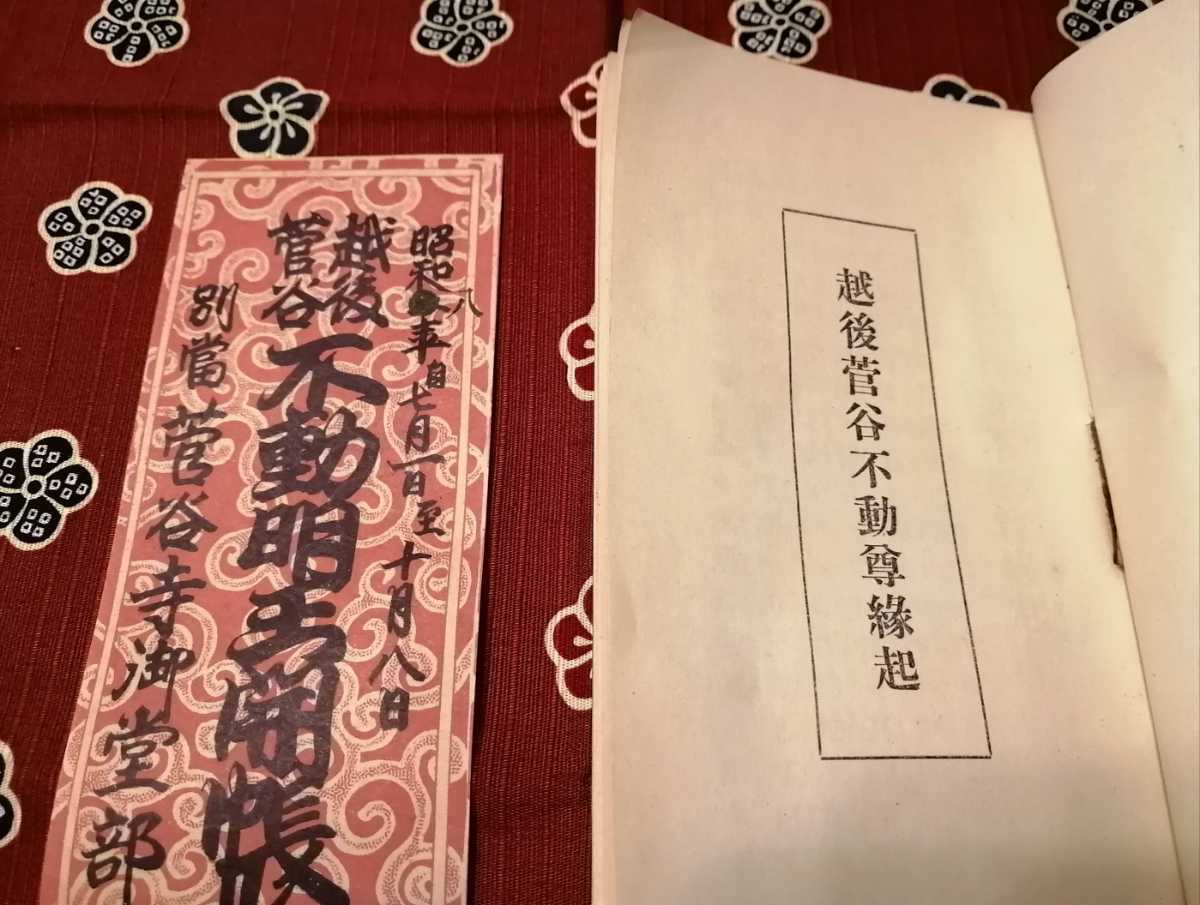 昭和八年自七月一日至十月八日
越後
菅谷
不動明王開帳
別當菅谷寺御堂部
越後菅谷不動尊緣起